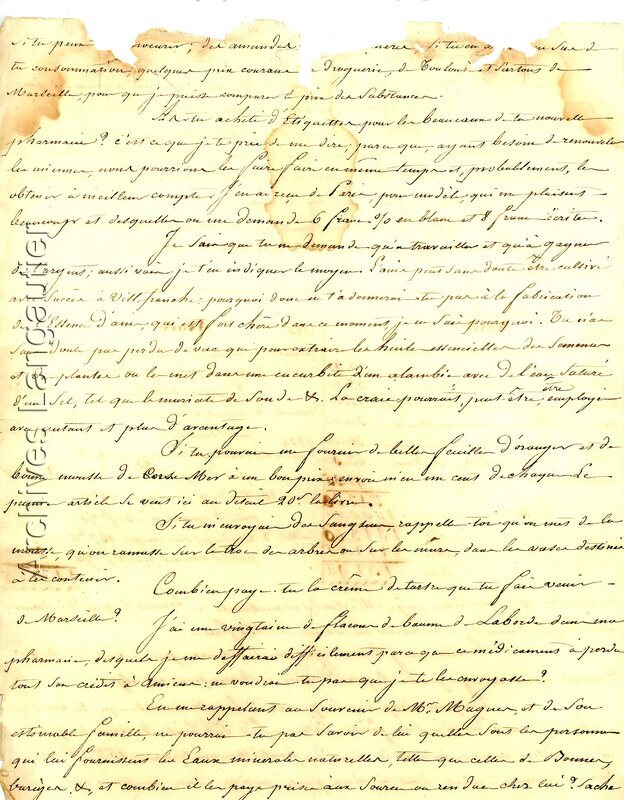 Si tu peux procurer, des amandes si tu en a
ta consommation, quelques prix courans droguerie, de Toulouse et surtout de
Marseille, pour que je puisse comparer le prix des substances.
As-tu acheté d'Etiquettes pour les beaucaux de ta nouvelle
pharmacie? c'est ce que je te prie de me dire, parce que, ayant besoin de renouveler
les miennes, nous pourrions les faire faire en même temps et, probablement, les
obtenir à meilleur compte. J'en ai reçu de Paris, pour modèle, qui me plaisent
beaucoup et desquelles on me demande 6 francs % en blanc et 8 francs écrites.
Je sais que tu ne demande qu'à travailler et qu'à gagner
de l'argent; aussi vais je t'en indiquer le moyen. L'anis peut sans doute être cultivé
avec succès à Villefranche: pourquoi donc ne t'adonnerai-tu pas à la fabrication
de l'Essence d'anis qui est fort chère dans ce moment, je ne sais pourquoi. Tu n'as
sans doute pas perdu de vue que pour extraire les huiles essencielles des semences
et des plantes on les met dans une cucurbite d'un alambic avec de l'eau saturé
d'un sel, tel que le muriate de soude &. La craie pourrait, peut être, être employée
avec autant et plus d'avantage.
Si tu pouvais me fournir de belles feuilles d'oranger et de
bonne mousse de Corse Mer à un bon prix, envoie m'en un cent de chaque. Le
premier article se vent ici au détail 20s la livre.
Si tu m'envoyais des Sangsues, rappelle-toi qu'on met de la
mousse, qu'on ramasse sur le troc des arbres ou sur les murs, dans les vases destinés
à les contenir.
Combien paye-tu la crême de tartre que tu fais venir
de Marseille?
J'ai une vingtaine de flacons de baume de Laborde dans ma
pharmacie, desquels je me déffairai difficilement parce que ce médicament a perdu
tout son crédit à Amiens: ne voudrais-tu pas que je te les envoyasse?
En me rappelant au souvenir de Mr. Magnes, et de son
estimable famille, ne pourrai-tu pas savoir de lui quelles sont les personnes
qui lui fournissent les Eaux minerales naturelles, telles que celles de Bonnes,
barèges, &, et combien il les paye prises aux Sources ou rendues chez lui? Sache
Archives Langautier